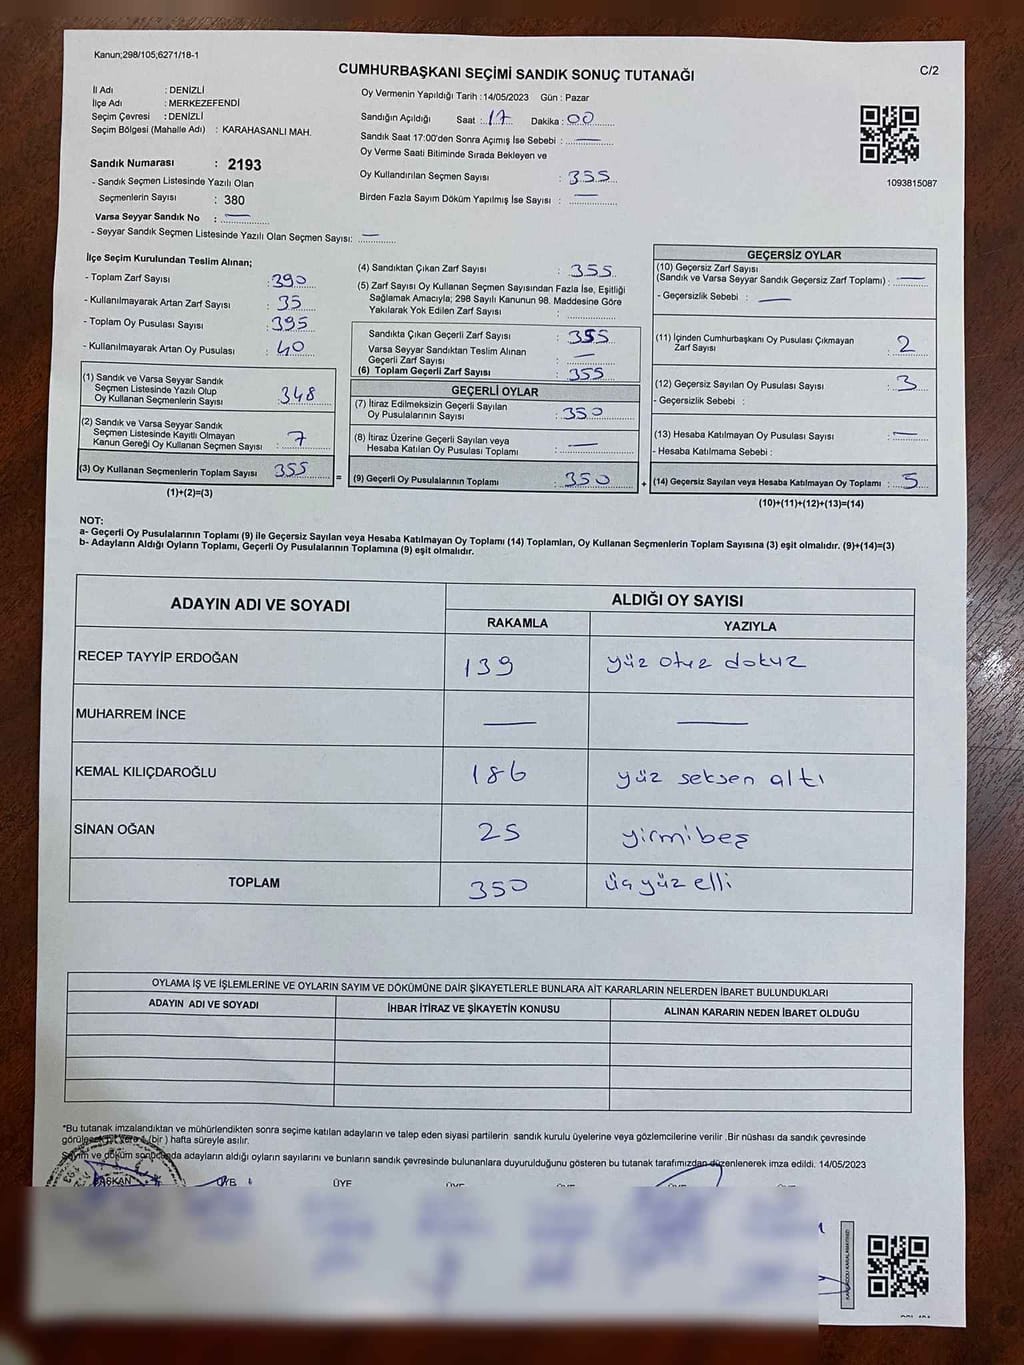 Kanun;298/105;6271/18-1
CUMHURBAŞKANI SEÇİMİ SANDIK SONUÇ TUTANAĞI
C/2
İl Adı : DENİZLİ
İlçe Adı : MERKEZEFENDİ
Seçim Çevresi : DENİZLİ
Seçim Bölgesi (Mahalle Adı) : KARAHASANLI MAH.
Sandık Numarası : 2193
- Sandık Seçmen Listesinde Yazılı Olan
Seçmenlerin Sayısı : 380
Varsa Seyyar Sandık No : —
- Seyyar Sandık Seçmen Listesinde Yazılı Olan Seçmen Sayısı: —
Oy Vermenin Yapıldığı Tarih : 14/05/2023 Gün : Pazar
Sandığın Açıldığı Saat : 17 Dakika : 00
Sandık Saat 17:00'den Sonra Açımış İse Sebebi : —
Oy Verme Saati Bitiminde Sırada Bekleyen ve
Oy Kullandırılan Seçmen Sayısı : 355
Birden Fazla Sayım Döküm Yapılmış İse Sayısı : —
1093815087
İlçe Seçim Kurulundan Teslim Alınan;
- Toplam Zarf Sayısı : 390
- Kullanılmayarak Artan Zarf Sayısı : 35
- Toplam Oy Pusulası Sayısı : 395
- Kullanılmayarak Artan Oy Pusulası : 40
(1) Sandık ve Varsa Seyyar Sandık
Seçmen Listesinde Yazılı Olup
Oy Kullanan Seçmenlerin Sayısı : 348
(2) Sandık ve Varsa Seyyar Sandık
Seçmen Listesinde Kayıtlı Olmayan
Kanun Gereği Oy Kullanan Seçmen Sayısı : 7
(3) Oy Kullanan Seçmenlerin Toplam Sayısı 355
(1)+(2)=(3)
=
(4) Sandıktan Çıkan Zarf Sayısı : 355
(5) Zarf Sayısı Oy Kullanan Seçmen Sayısından Fazla İse, Eşitliği
Sağlamak Amacıyla; 298 Sayılı Kanunun 98. Maddesine Göre
Yakılarak Yok Edilen Zarf Sayısı :
Sandıkta Çıkan Geçerli Zarf Sayısı : 355
Varsa Seyyar Sandıktan Teslim Alınan
Geçerli Zarf Sayısı : —
(6) Toplam Geçerli Zarf Sayısı : 355
GEÇERLİ OYLAR
(7) İtiraz Edilmeksizin Geçerli Sayılan
Oy Pusulalarının Sayısı : 350
(8) İtiraz Üzerine Geçerli Sayılan veya
Hesaba Katılan Oy Pusulası Toplamı : —
(9) Geçerli Oy Pusulalarının Toplamı : 350
+
GEÇERSİZ OYLAR
(10) Geçersiz Zarf Sayısı
(Sandık ve Varsa Seyyar Sandık Geçersiz Zarf Toplamı) : —
- Geçersizlik Sebebi : —
(11) İçinden Cumhurbaşkanı Oy Pusulası Çıkmayan
Zarf Sayısı : 2
(12) Geçersiz Sayılan Oy Pusulası Sayısı : 3
- Geçersizlik Sebebi :
(13) Hesaba Katılmayan Oy Pusulası Sayısı : —
- Hesaba Katılmama Sebebi :
(14) Geçersiz Sayılan veya Hesaba Katılmayan Oy Toplamı : 5
(10)+(11)+(12)+(13)=(14)
NOT:
a- Geçerli Oy Pusulalarının Toplamı (9) ile Geçersiz Sayılan veya Hesaba Katılmayan Oy Toplamı (14) Toplamları, Oy Kullanan Seçmenlerin Toplam Sayısına (3) eşit olmalıdır. (9)+(14)=(3)
b- Adayların Aldığı Oyların Toplamı, Geçerli Oy Pusulalarının Toplamına (9) eşit olmalıdır.
ADAYIN ADI VE SOYADI
ALDIĞI OY SAYISI
RAKAMLA YAZIYLA
RECEP TAYYİP ERDOĞAN 139 yüz otuz dokuz
MUHARREM İNCE — —
KEMAL KILIÇDAROĞLU 186 yüz seksen altı
SİNAN OĞAN 25 yirmibeş
TOPLAM 350 üç yüz elli
OYLAMA İŞ VE İŞLEMLERİNE VE OYLARIN SAYIM VE DÖKÜMÜNE DAİR ŞİKAYETLERLE BUNLARA AİT KARARLARIN NELERDEN İBARET BULUNDUKLARI
ADAYIN ADI VE SOYADI İHBAR İTİRAZ VE ŞİKAYETİN KONUSU ALINAN KARARIN NEDEN İBARET OLDUĞU
*Bu tutanak imzalandıktan ve mühürlendikten sonra seçime katılan adayların ve talep eden siyasi partilerin sandık kurulu üyelerine veya gözlemcilerine verilir .Bir nüshası da sandık çevresinde
görülecek bir yere 1 (bir ) hafta süreyle asılır.
Sayım ve döküm sonucunda adayların aldığı oyların sayılarını ve bunların sandık çevresinde bulunanlara duyurulduğunu gösteren bu tutanak tarafımızdan düzenlenerek imza edildi. 14/05/2023
BAŞKAN ÜYE ÜYE ÜYE ÜYE ÜYE